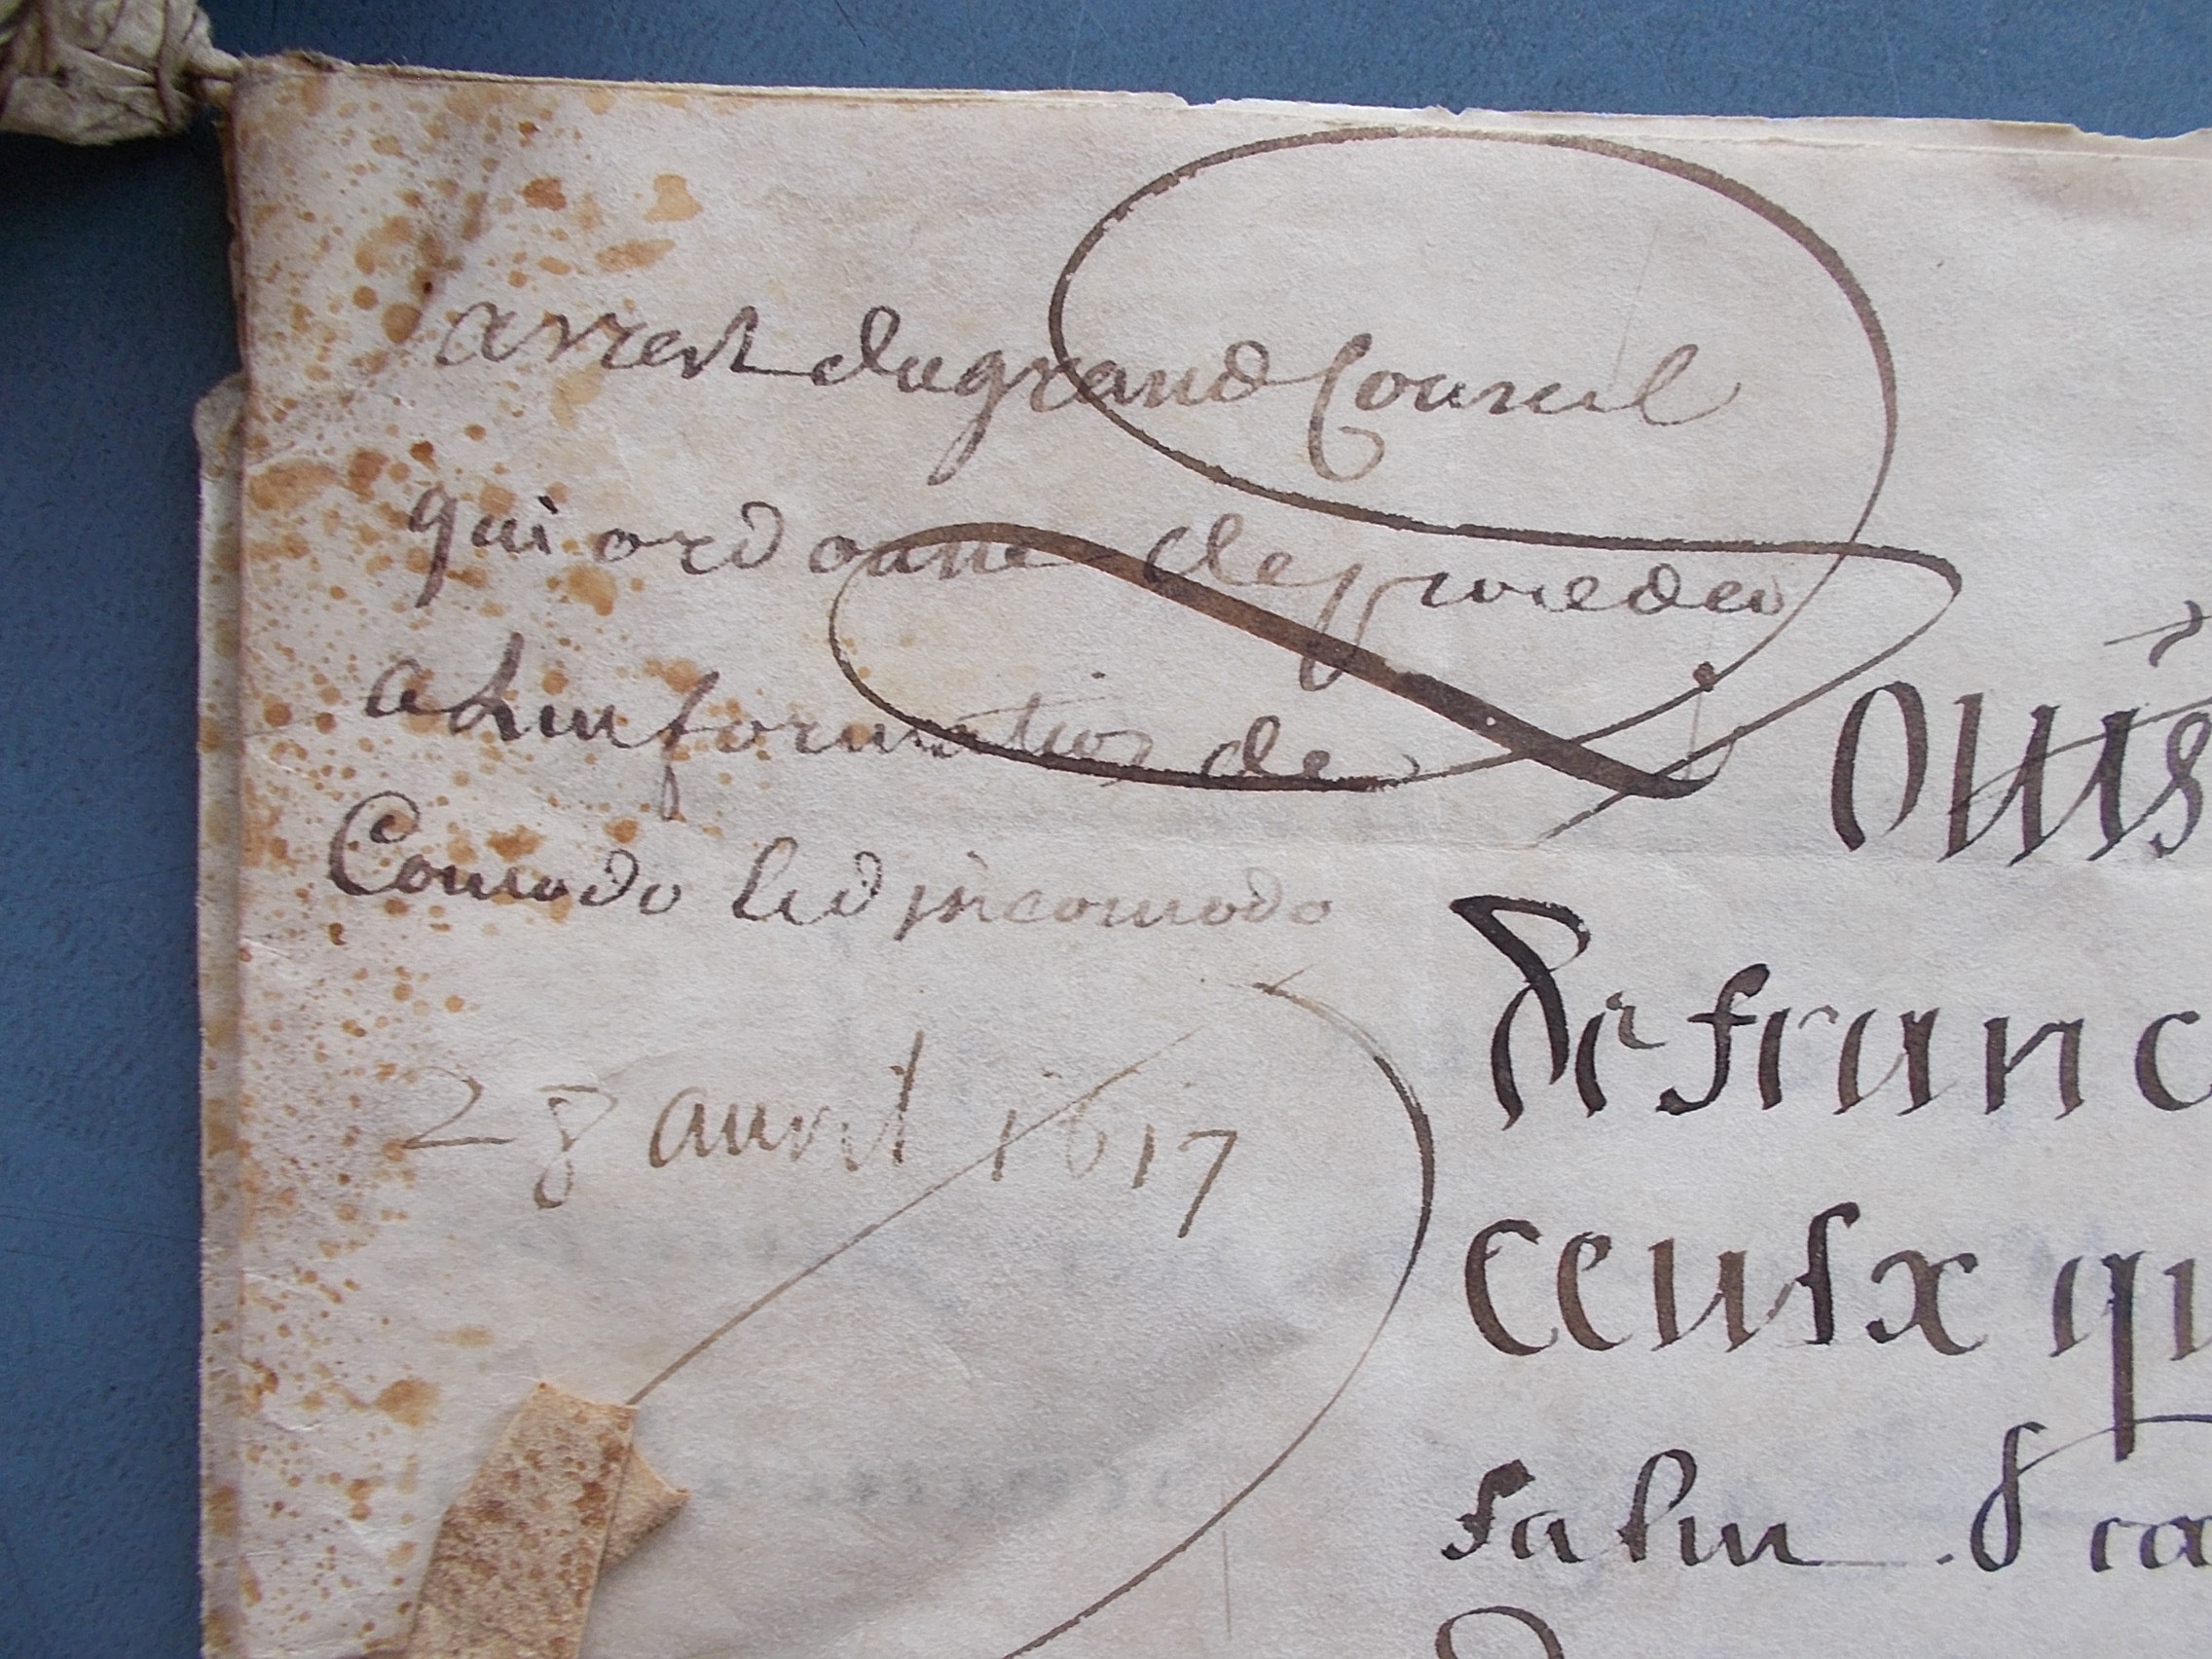 arrest du grand Conseil
qui ordonne de proceder
a Linformation de
Comodo Led incomodo
28 auril 1617
ouis
de franc
ceulx qu
salut